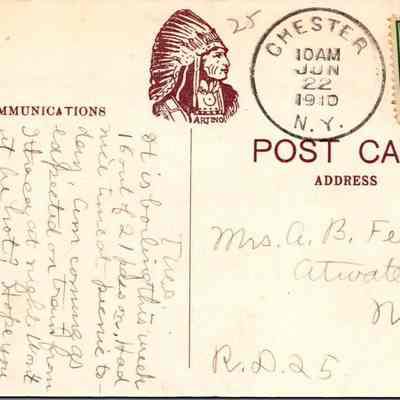 25
CHESTER
10AM
JUN
22
1910
N.Y.
ARTINO
MMUNICATIONS
POST CA
ADDRESS
Tues.
It is boiling this week
16 out of 21 hrs on. Had
nice time at picnic to-
day. Am coming as
expected on train from
at night. Wont
it be hot? Hope you
Mrs. A. B. Fe
Atwate
N
R.D. 25.